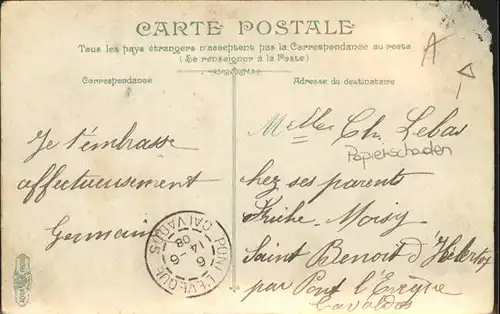 CARTE POSTALE
Tous les pays étrangers n'acceptent pas la Correspondance au recto
(Se renseigner à la Poste)
Correspondance
Adresse du destinataire
A
Je t'embrasse
affectueusement
Germaine
PONT-L'EVEQUE
CALVADOS
6
14-6
08
Melle Ch. Lebas
Papierschaden
chez ses parents
Friche-Moisy
Saint Benoit d'Hébertot
par Pont l'Evêque
Calvados